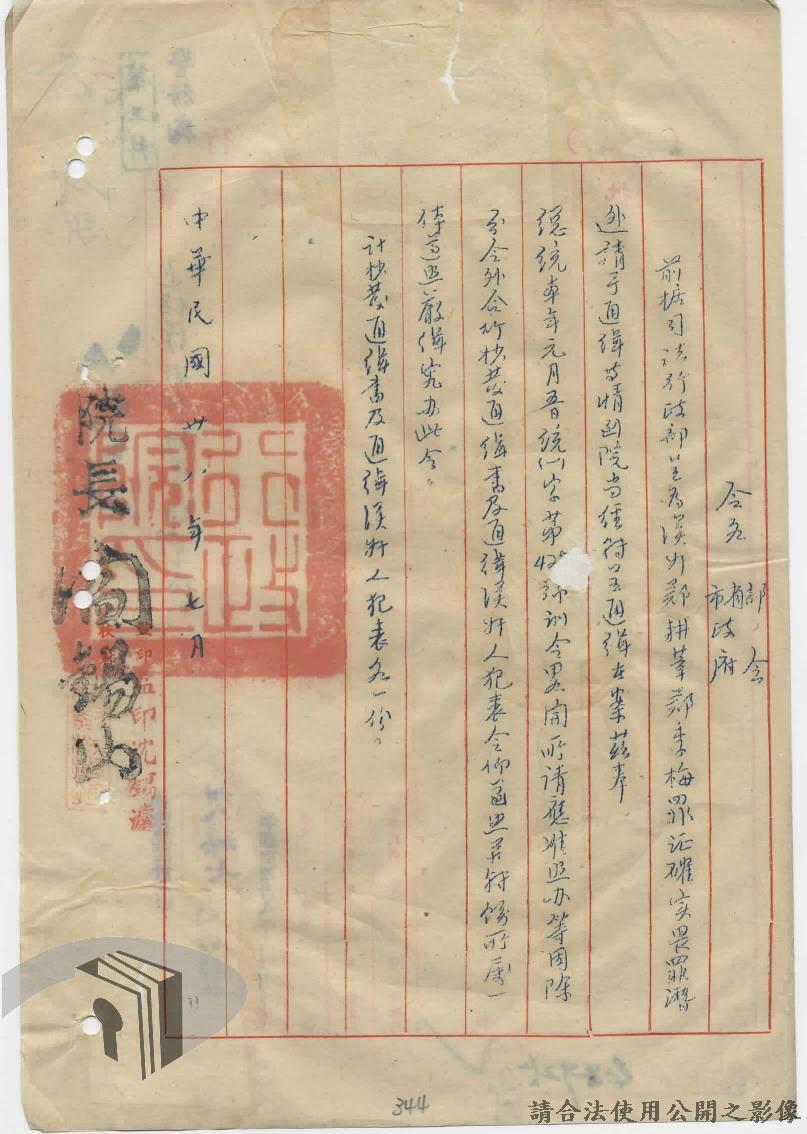 令各 部、會 省市政府
前據司法行政部呈為漢奸鄭耕莘鄭季梅罪証確實畏罪潛
逃請予通緝等情到院當經轉呈通緝在案茲奉
總統本年元月五日統(一)字第 號訓令畧開所請應准照办等因除
分令外合行抄發通緝書及通緝漢奸人犯表令仰遵照並轉飭所屬一
体遵照嚴緝究办此令。
計抄發通緝書及通緝漢奸人犯表各一份。
中華民國卅八年 七月
院長閻錫山
監印沈錫
344
請合法使用公開之影像